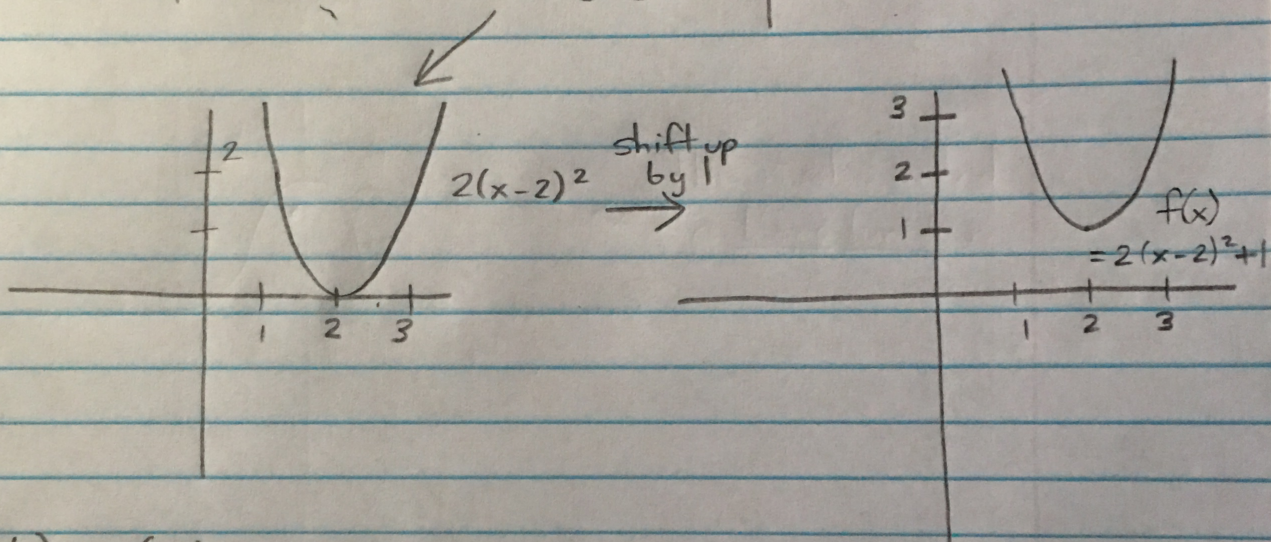 2
1 2 3
2(x-2)²
shift up
by 1
3
2
1
1 2 3
f(x)
= 2(x-2)²+1